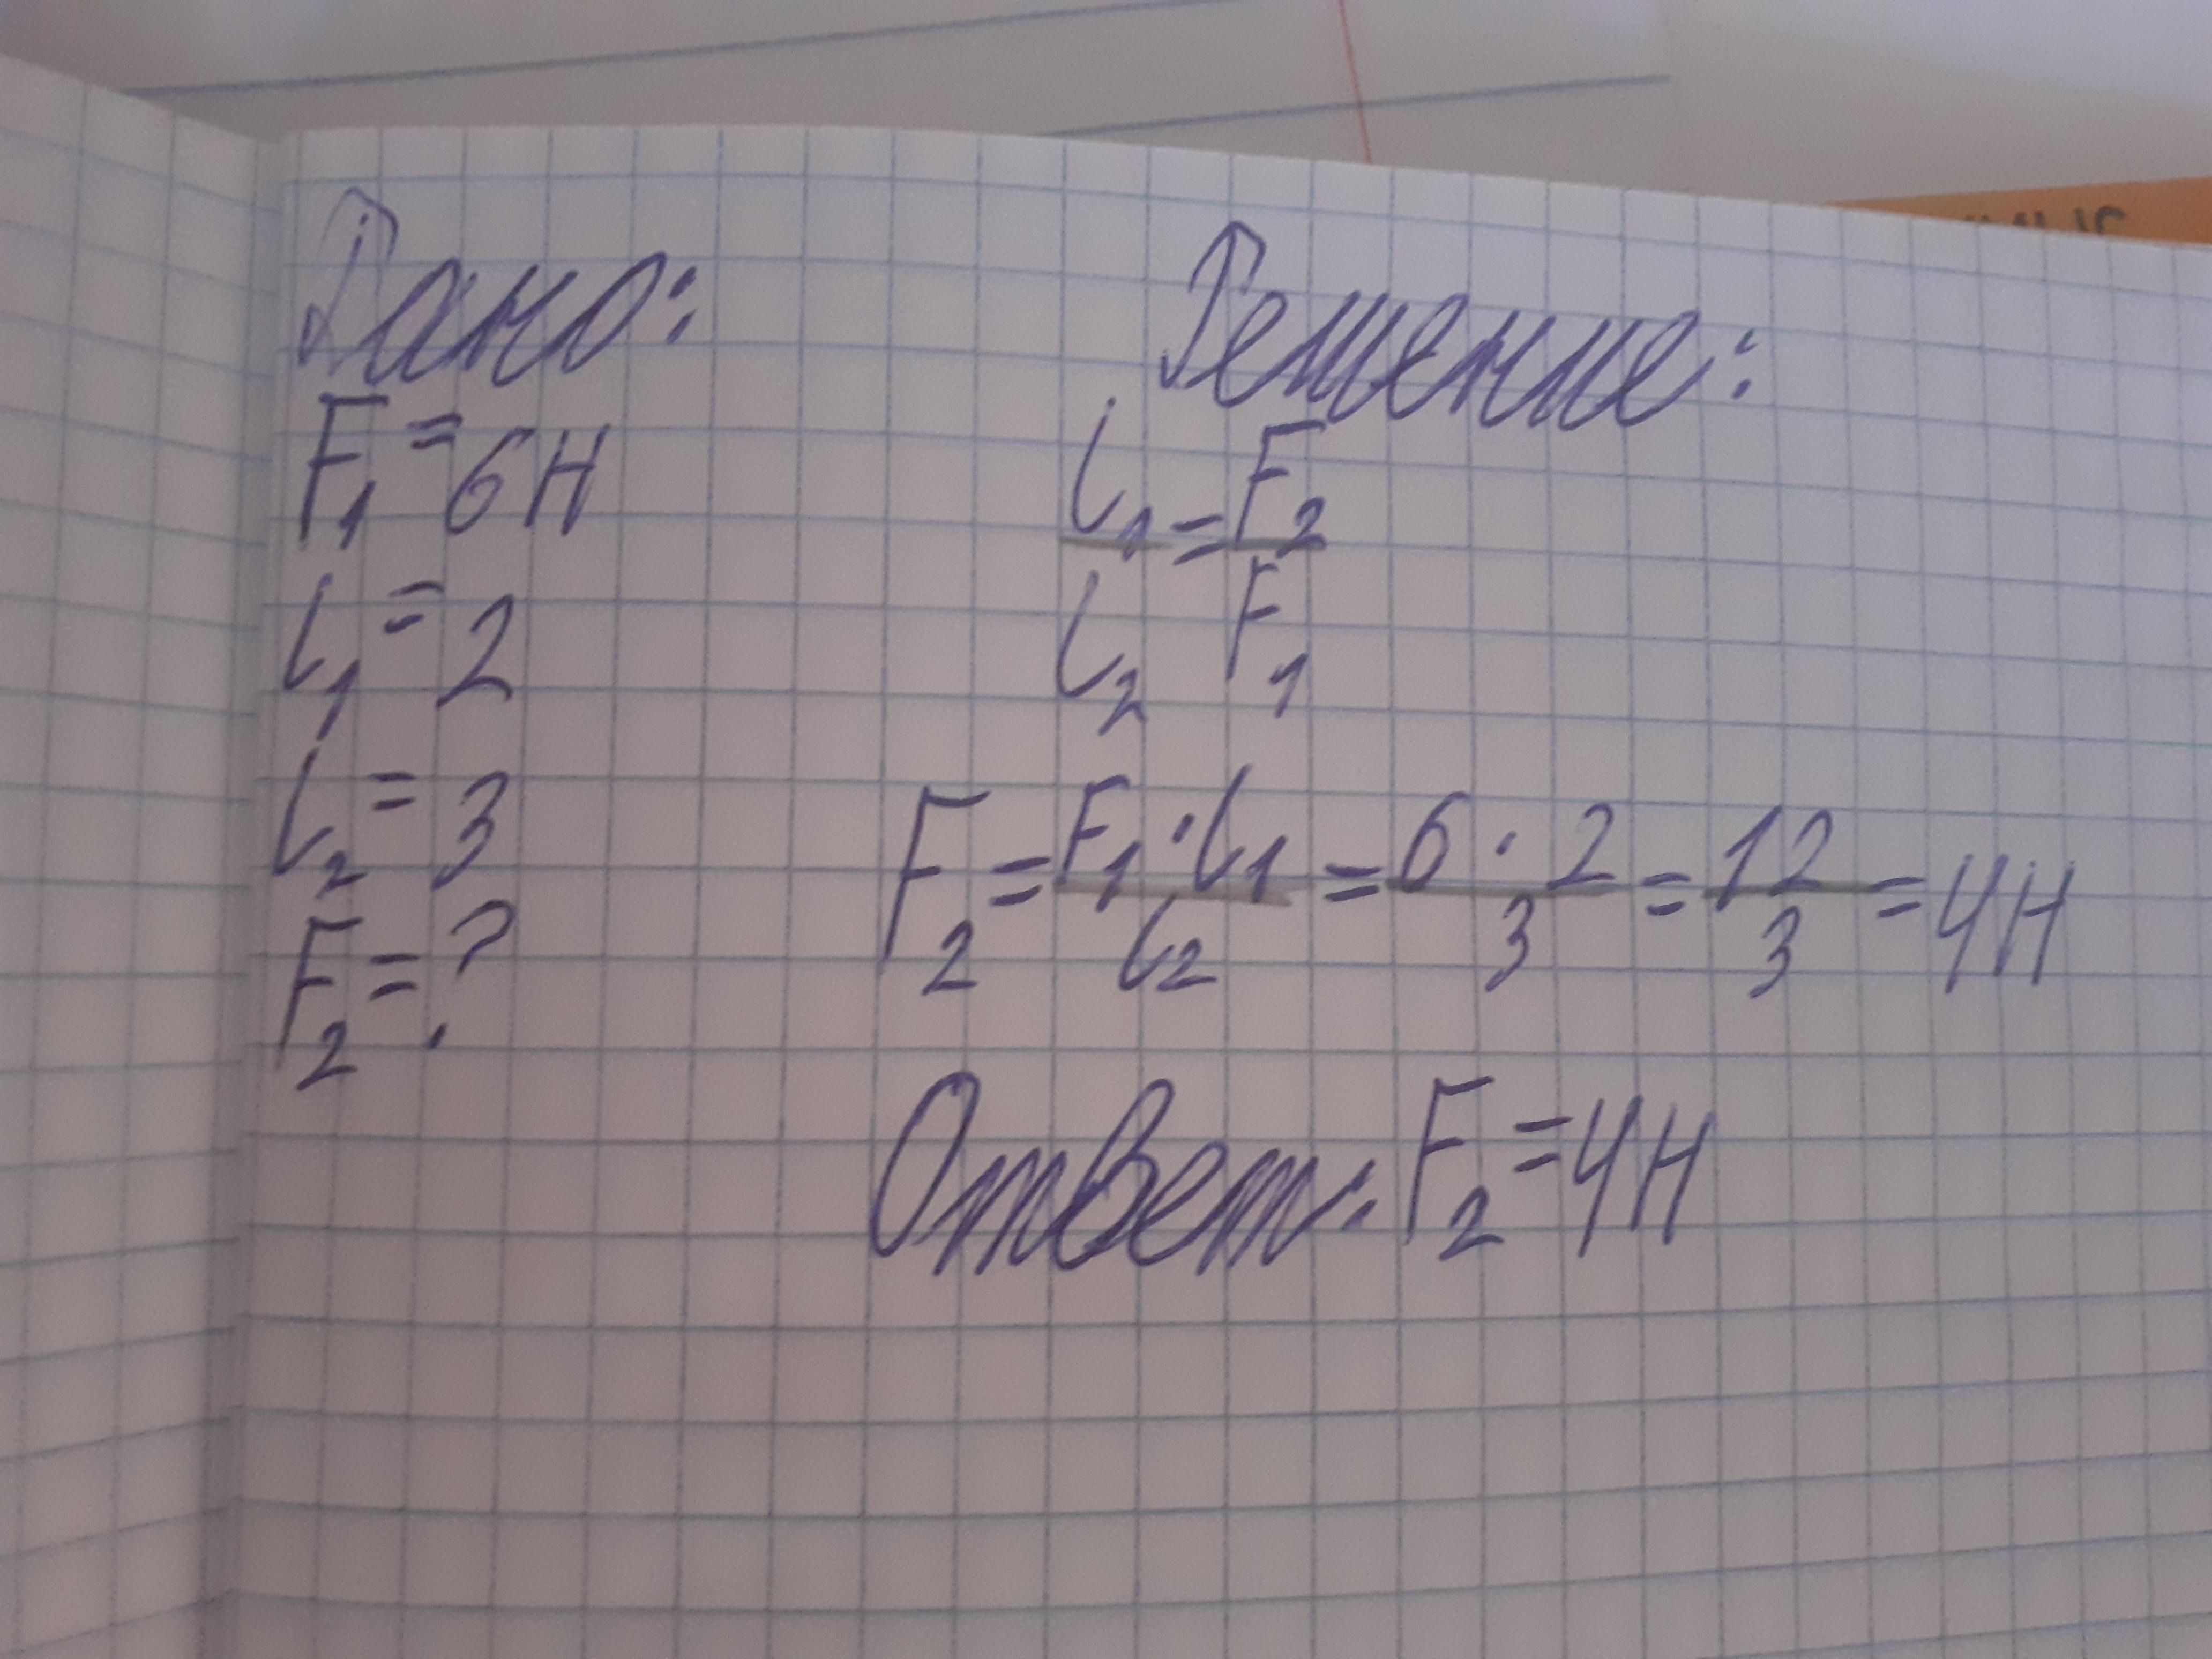 Дано:
F₁ = 6Н
l₁ = 2
l₂ = 3
F₂ = ?
Решение:
l₁/l₂ = F₂/F₁
F₂ = F₁·l₁/l₂ = 6·2/3 = 12/3 = 4Н
Ответ: F₂ = 4Н